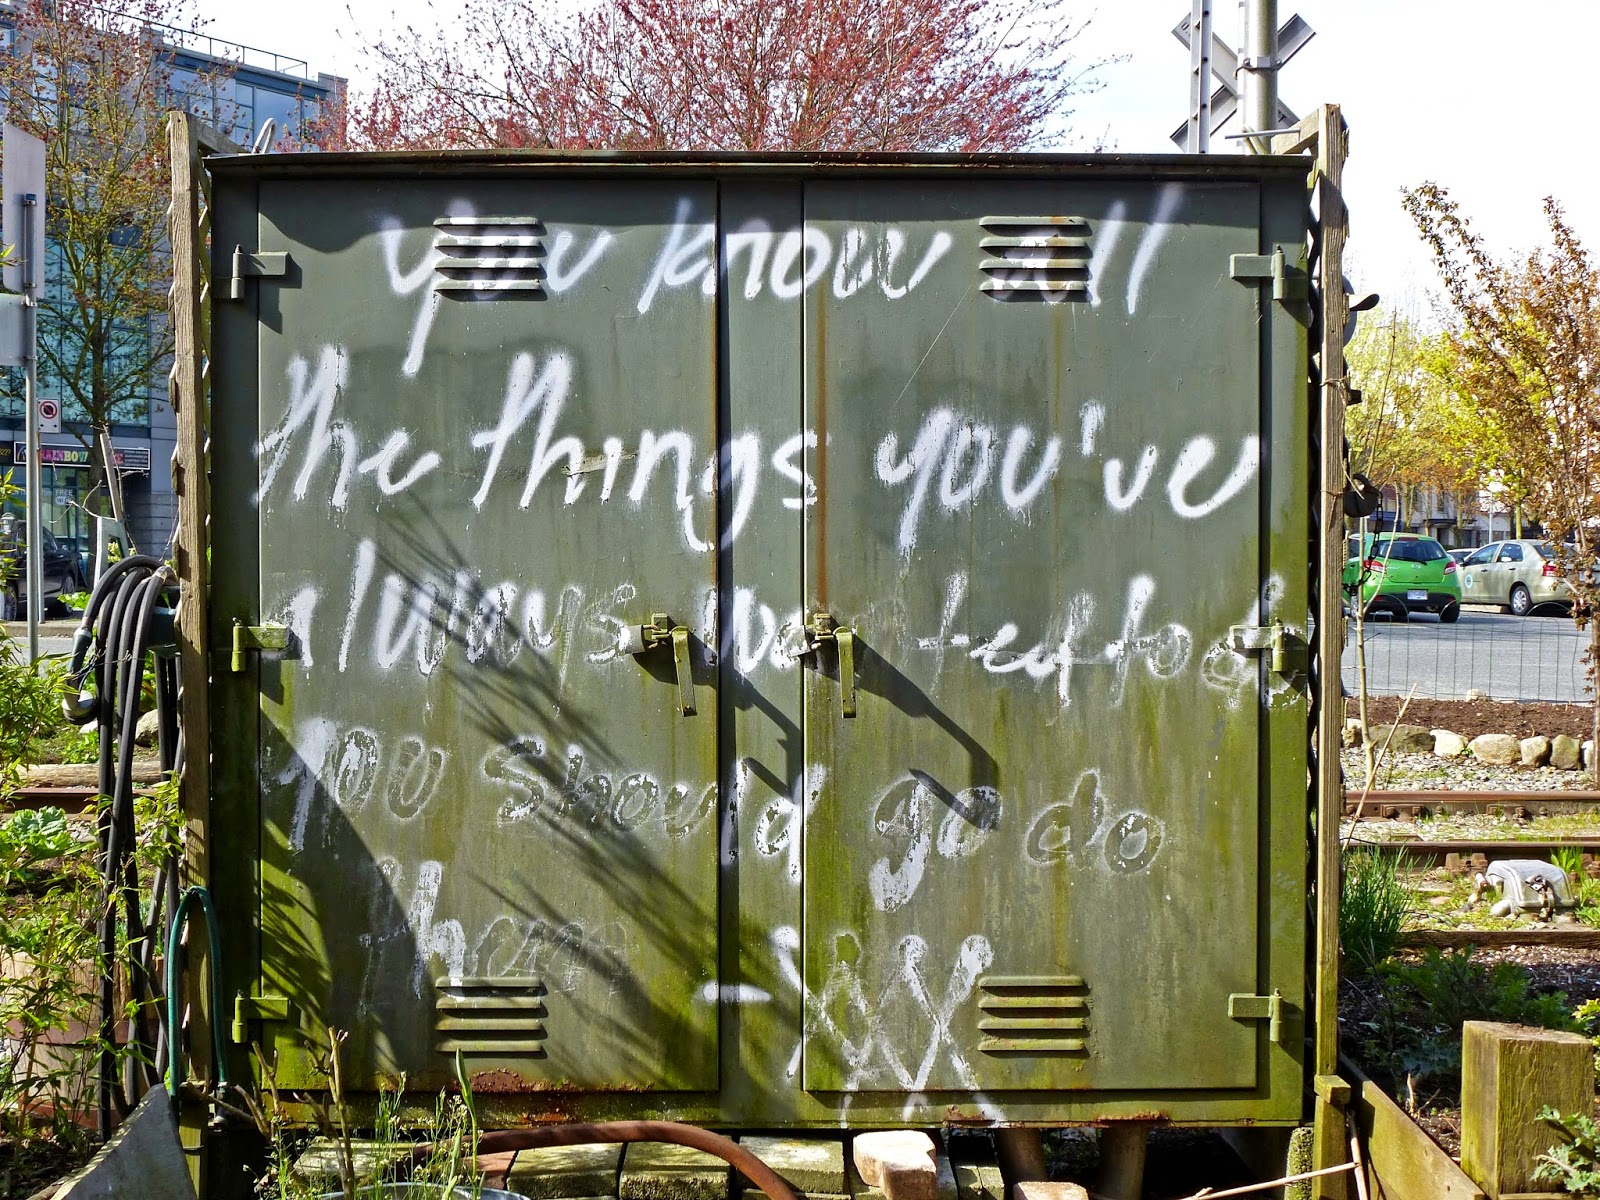 you know all
the things you've
always wanted to do
you should go do
them
- XXX
RAINBOW
FREE